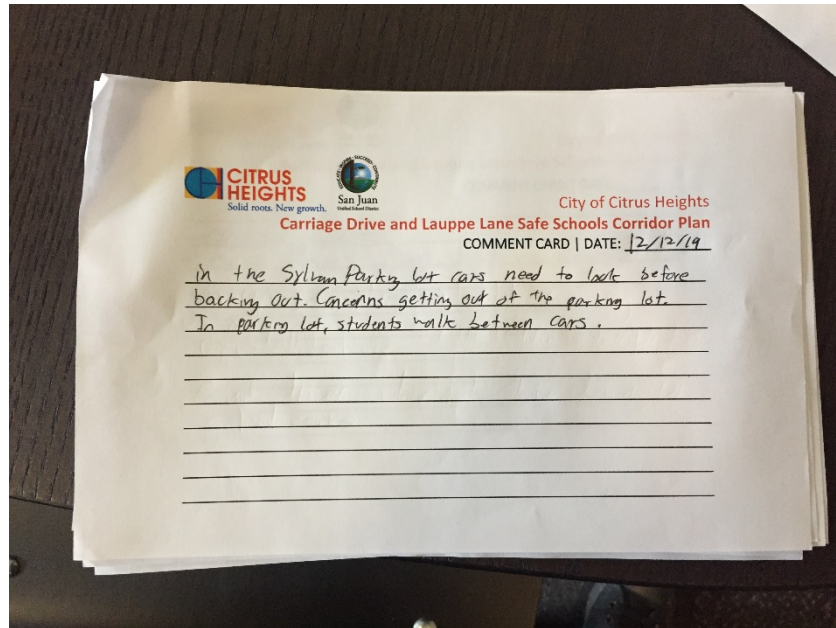 CITRUS
HEIGHTS
Solid roots. New growth.
San Juan
Unified School District
City of Citrus Heights
Carriage Drive and Lauppe Lane Safe Schools Corridor Plan
COMMENT CARD | DATE: 12/12/19
in the Sylvan Parking lot cars need to look before
backing out. Concerns getting out of the parking lot.
In parking lot, students walk between cars.